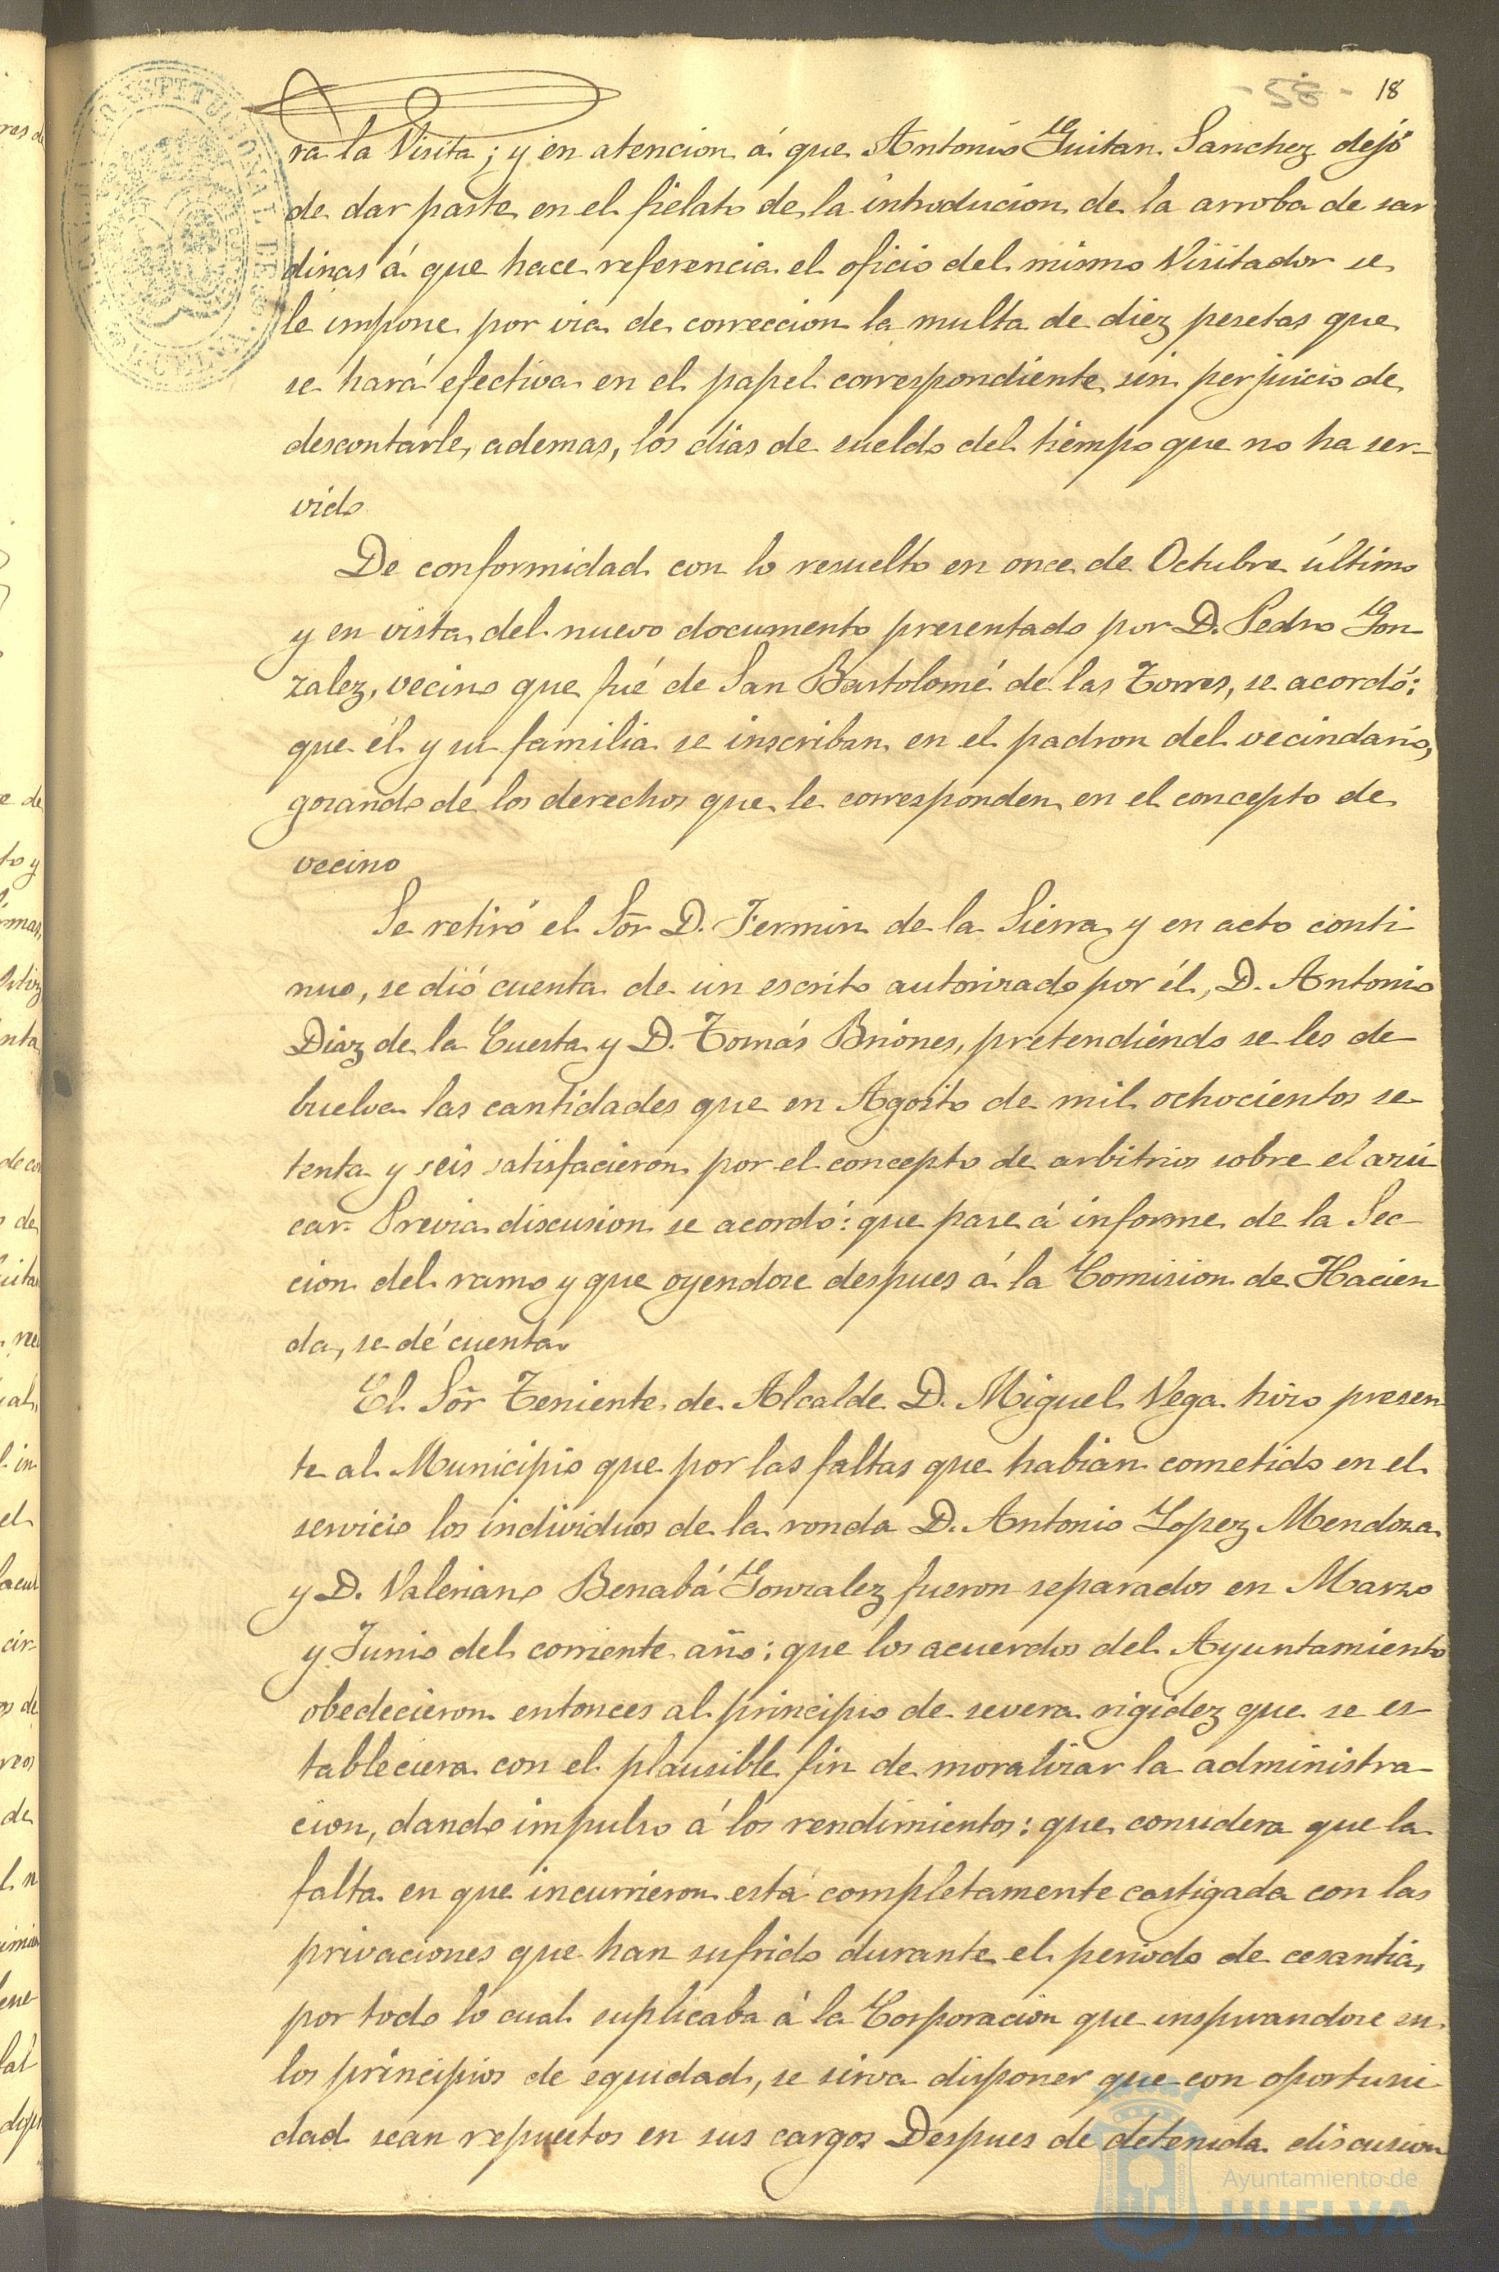 - 58 - 18
ra la Visita; y en atencion á que Antonio Guitan Sanchez dejó
de dar parte en el fielato de la introducion de la arroba de sar
dinas á que hace referencia el oficio del mismo Visitador se
le impone por via de correccion la multa de diez pesetas que
se hará efectiva en el papel correspondiente sin perjuicio de
descontarle, ademas, los dias de sueldo del tiempo que no ha ser-
vido
De conformidad con lo resuelto en once de Octubre último
y en vista del nuevo documento presentado por D. Pedro Gon
zalez, vecino que fué de San Bartolomé de las Torres, se acordó:
que él y su familia se inscriban en el padron del vecindario,
gozando de los derechos que le corresponden en el concepto de
vecino
Se retiró el Sōr D. Fermin de la Sierra y en acto conti
nuo, se dió cuenta de un escrito autorizado por él, D. Antonio
Diaz de la Cuesta y D. Tomás Briones, pretendiendo se les de
buelva las cantidades que en Agosto de mil ochocientos se
tenta y seis satisfacieron por el concepto de arbitrios sobre el azú
car. Previa discusion se acordó: que pase á informe de la Sec-
cion del ramo y que oyendose despues á la Comision de Hacien
da, se dé cuenta.
El Sōr Teniente de Alcalde D. Miguel Vega hizo presen
te al Municipio que por las faltas que habian cometido en el
servicio los individuos de la ronda D. Antonio Lopez Mendoza
y D. Valeriano Benabá Gonzalez fueron separados en Marzo
y Junio del corriente año: que los acuerdos del Ayuntamiento
obedecieron entonces al principio de severa rigidez que se es-
tableciera con el plausible fin de moralizar la administra-
cion, dando impulso á los rendimientos: que considera que la
falta en que incurrieron está completamente castigada con las
privaciones que han sufrido durante el periodo de cesantia,
por todo lo cual suplicaba á la Corporacion que inspirandose en
los principios de equidad, se sirva disponer que con oportuni
dad sean repuestos en sus cargos Despues de detenida discusion
Ayuntamiento de
HUELVA